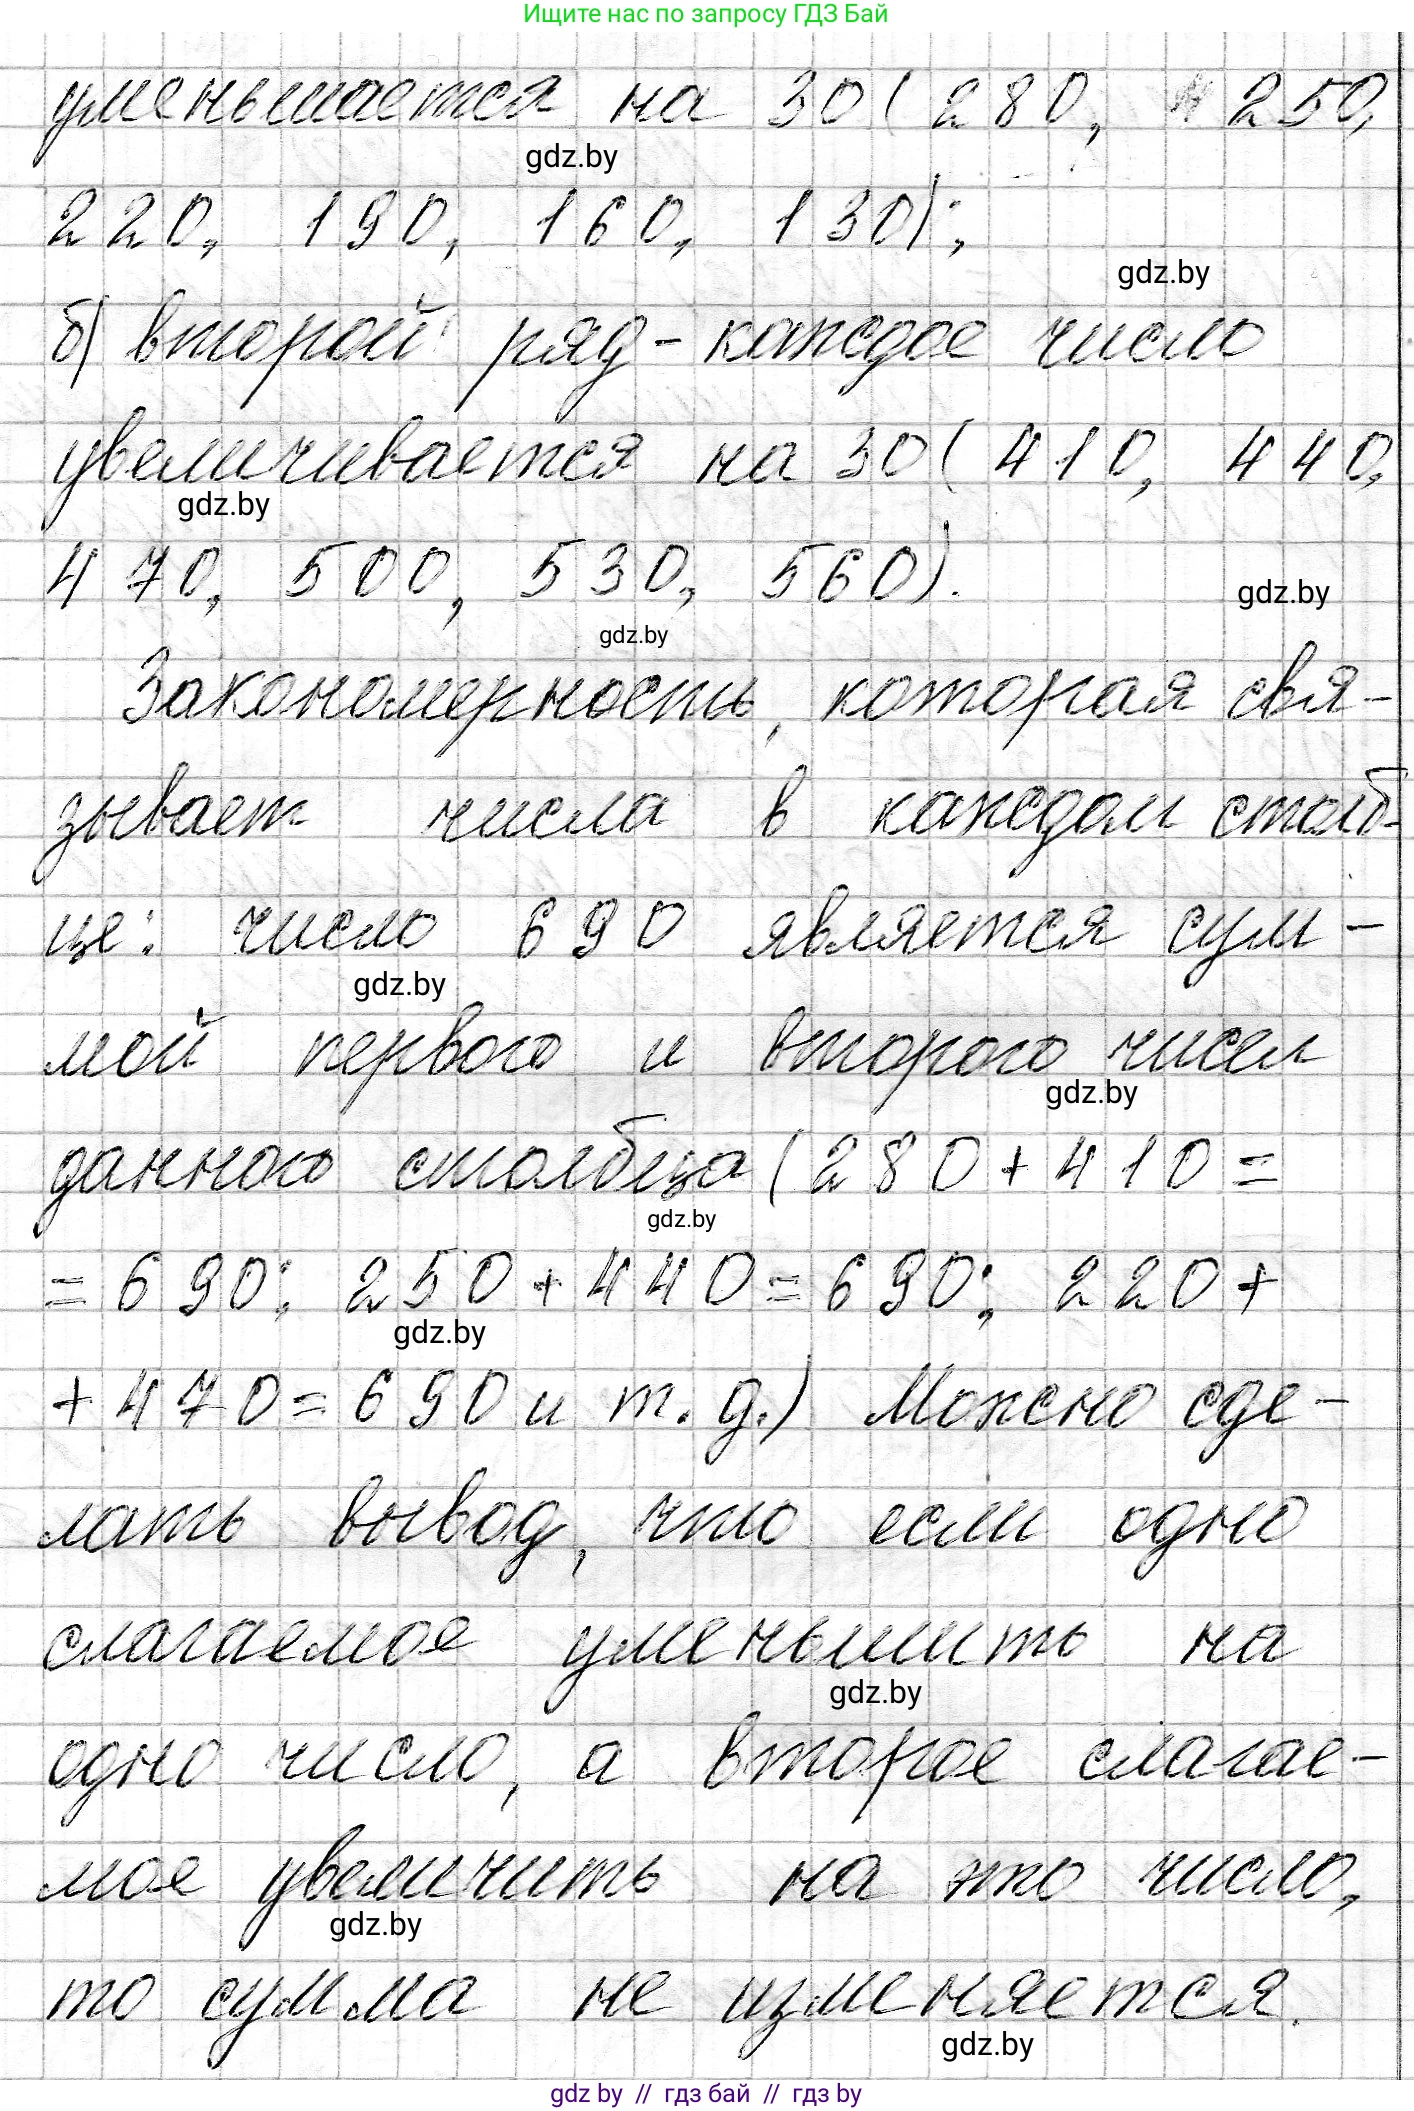 Ищите нас по запросу ГДЗ Бай
уменьшается на 30 (280, 250,
gdz.by
220, 190, 160, 130);
gdz.by
б) второй ряд - каждое число
увеличивается на 30 (410, 440,
gdz.by
470, 500, 530, 560).
gdz.by
gdz.by
Закономерность, которая свя-
зывает числа в каждом столб-
це: число 690 является сум-
gdz.by
мой первого и второго чисел
gdz.by
данного столбца (280 + 410 =
gdz.by
= 690; 250 + 440 = 690; 220 +
gdz.by
+ 470 = 690 и т. д.) Можно сде-
лать вывод, что если одно
слагаемое уменьшить на
gdz.by
одно число, а второе слагае-
мое увеличить на это число,
gdz.by
то сумма не изменяется.
gdz.by
gdz by // гдз бай // гдз by